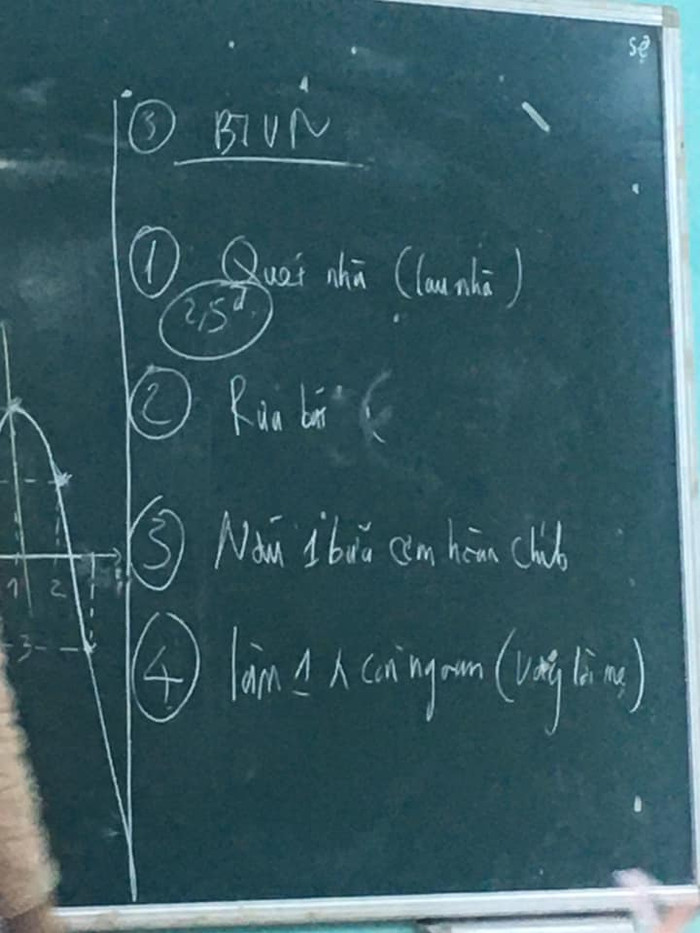 sẹ
③ BTVN
① Quét nhà (lau nhà)
2,5đ
② Rửa bát (
③ Nấu 1 bữa cơm hoàn chỉnh
④ làm 1 con ngoan (vâng lời mẹ)
1 2
-3